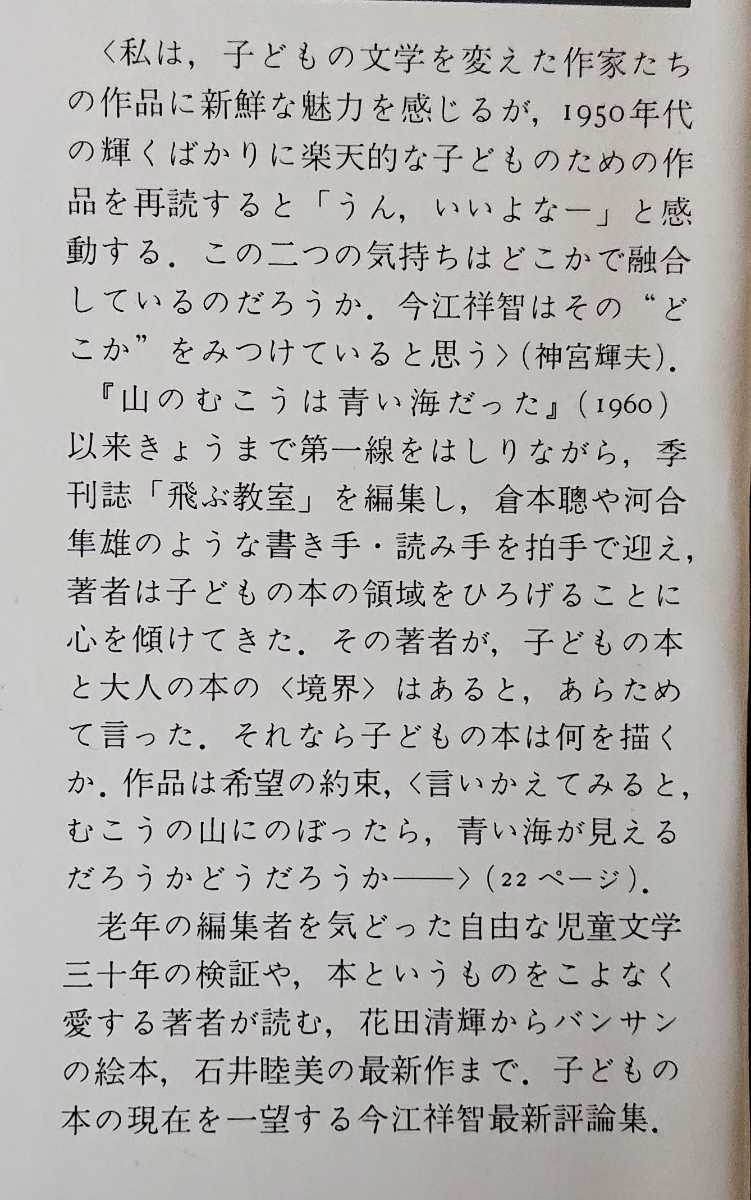 〈私は，子どもの文学を変えた作家たち
の作品に新鮮な魅力を感じるが，1950年代
の輝くばかりに楽天的な子どものための作
品を再読すると「うん，いいよなー」と感
動する．この二つの気持ちはどこかで融合
しているのだろうか．今江祥智はその“ど
こか”をみつけていると思う〉(神宮輝夫)．
『山のむこうは青い海だった』(1960)
以来きょうまで第一線をはしりながら，季
刊誌「飛ぶ教室」を編集し，倉本聰や河合
隼雄のような書き手・読み手を拍手で迎え，
著者は子どもの本の領域をひろげることに
心を傾けてきた．その著者が，子どもの本
と大人の本の〈境界〉はあると，あらため
て言った．それなら子どもの本は何を描く
か．作品は希望の約束，〈言いかえてみると，
むこうの山にのぼったら，青い海が見える
だろうかどうだろうか――〉(22ページ)．
老年の編集者を気どった自由な児童文学
三十年の検証や，本というものをこよなく
愛する著者が読む，花田清輝からバンサン
の絵本，石井睦美の最新作まで．子どもの
本の現在を一望する今江祥智最新評論集．